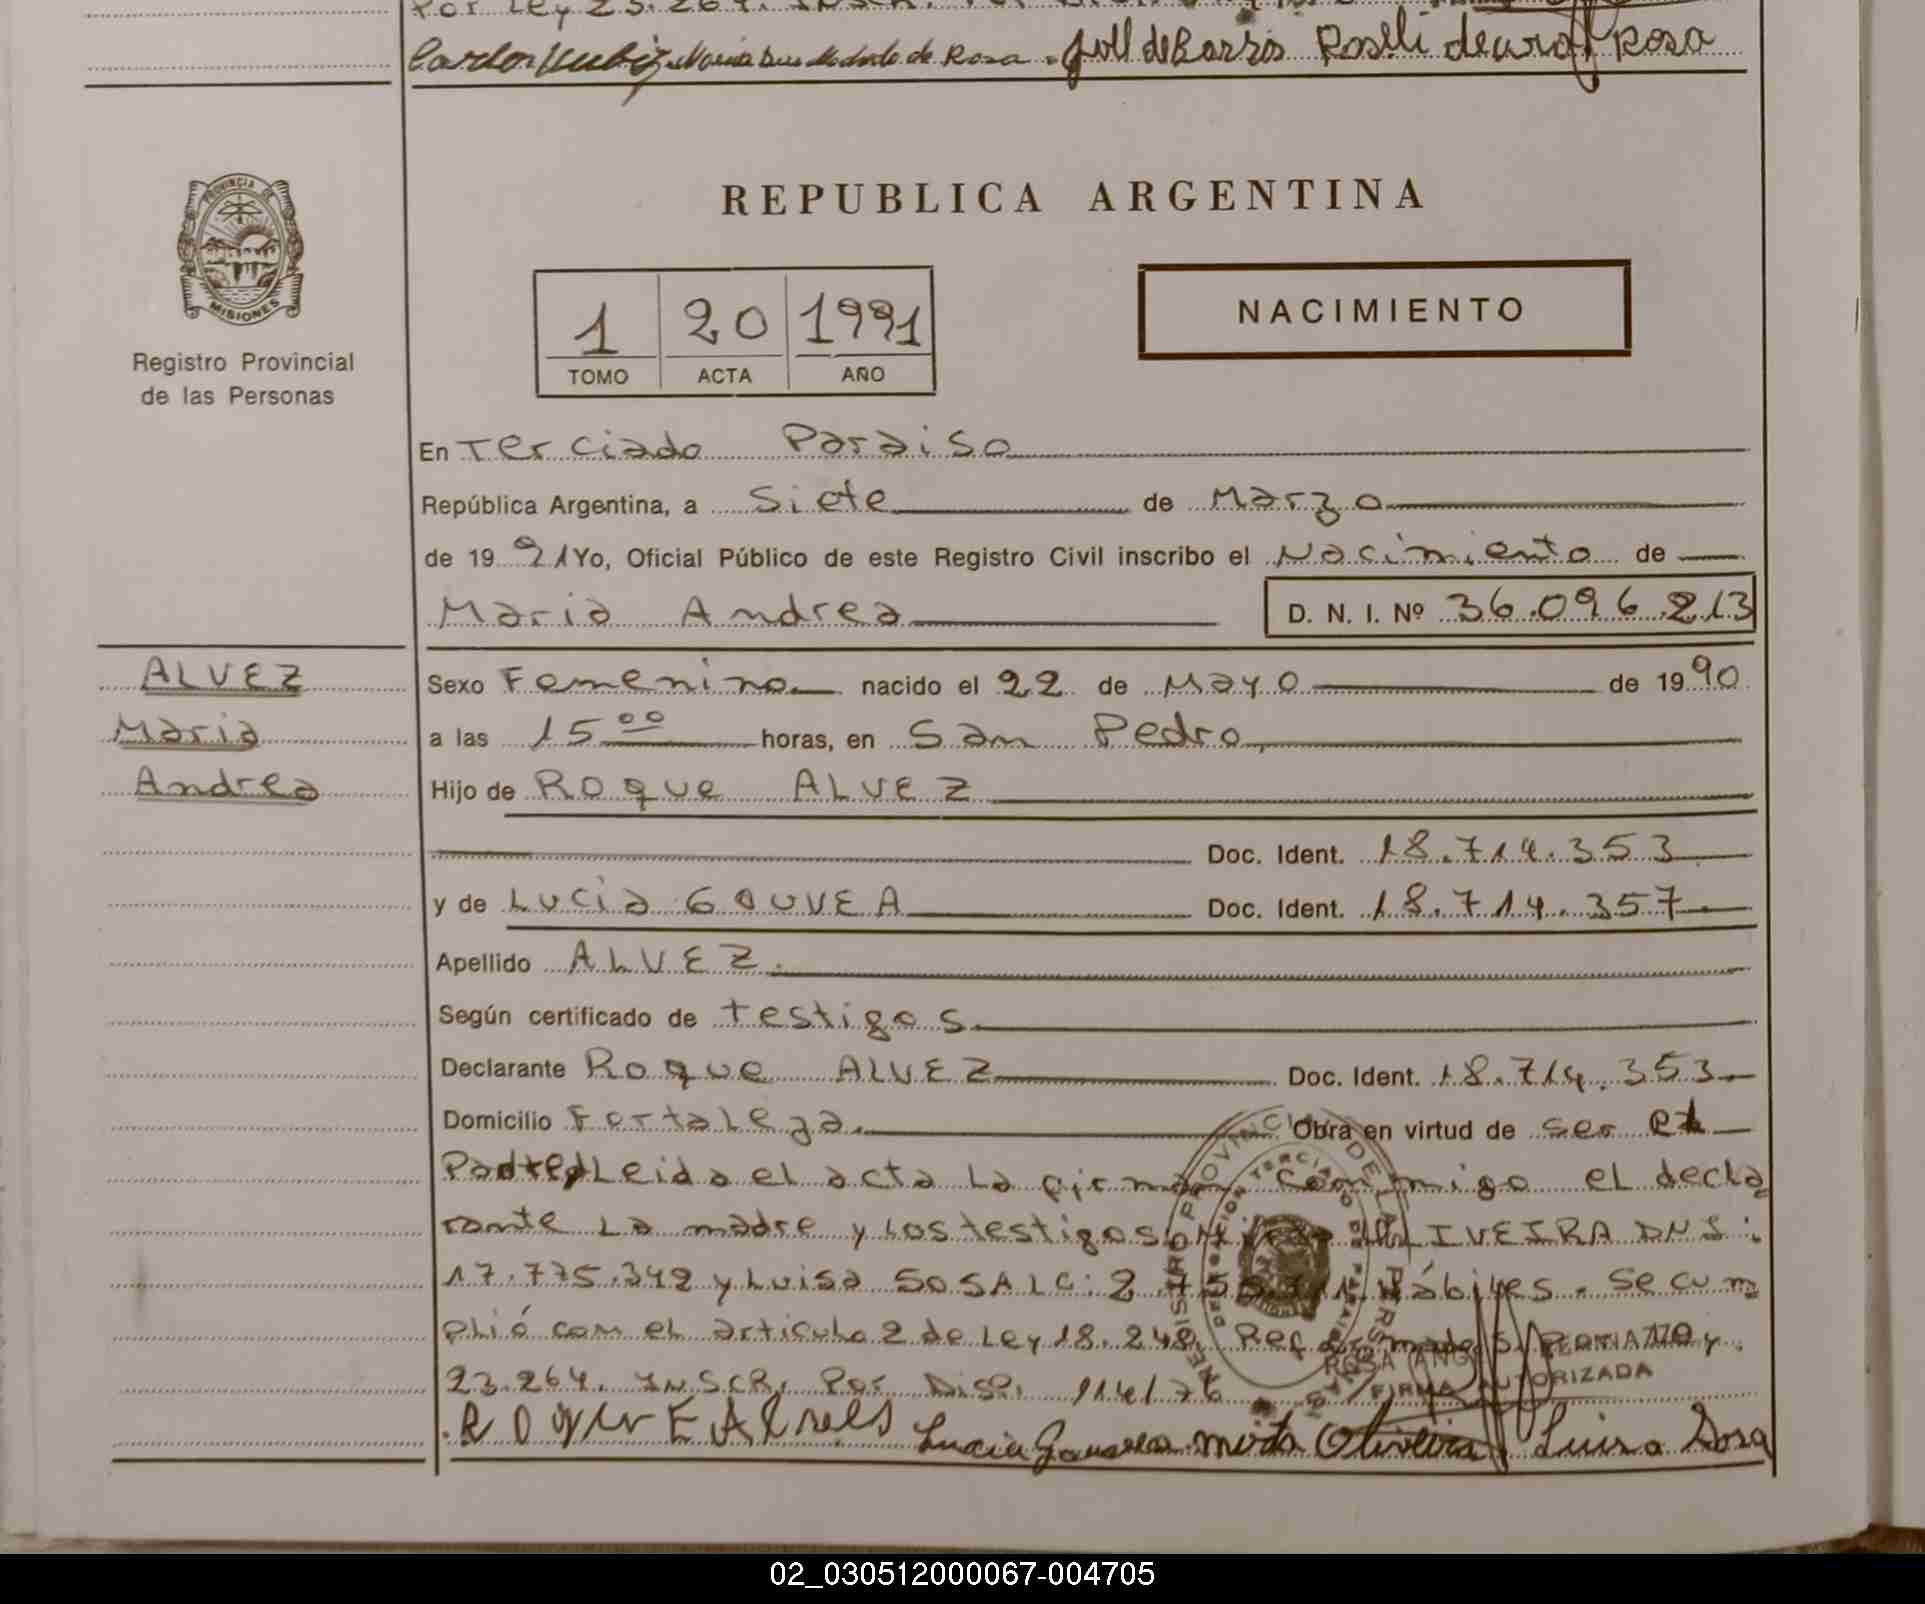 Por Ley 23.264.
Carlos
Maria Luz Machado de Rosa. Roselli Rosa
PROVINCIA DE
MISIONES
Registro Provincial
de las Personas
REPUBLICA ARGENTINA
1 20 1991
TOMO ACTA AÑO
NACIMIENTO
En Terciado Paraiso
República Argentina, a Siete de Marzo
de 19 91 Yo, Oficial Público de este Registro Civil inscribo el Nacimiento de
Maria Andrea D. N. I. Nº 36.096.213
ALVEZ
Maria
Andrea
Sexo Femenino nacido el 22 de Mayo de 19 90
a las 15 00 horas, en San Pedro,
Hijo de Roque ALVEZ
Doc. Ident. 18.714.353
y de Lucia GOUVEA Doc. Ident. 18.714.357
Apellido ALVEZ.
Según certificado de testigos
Declarante Roque ALVEZ Doc. Ident. 18.714.353
Domicilio Fortaleza. Obra en virtud de ser el
Padre, Leida el acta La firman conmigo el decla
rante La madre y Los testigos: OLIVEIRA DNI:
17.775.342 y Luisa SOSA LC: 2. Hábiles. Se cum
plió con el articulo 2 de Ley 18.248, y
23.264. INSCR. Por Disp. 114/76
FIRMA AUTORIZADA
Lucia Gouvea mirta Oliveira Luisa Sosa
02_030512000067-004705